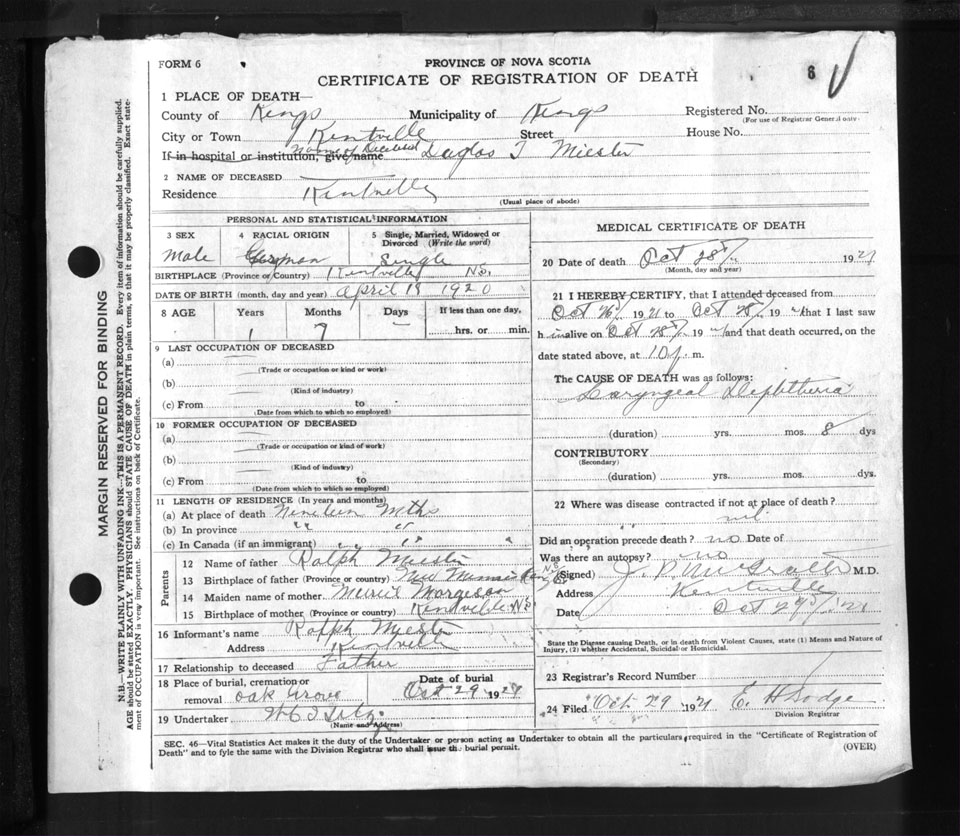 FORM 6
PROVINCE OF NOVA SCOTIA
CERTIFICATE OF REGISTRATION OF DEATH
6
1 PLACE OF DEATH—
County of Kings Municipality of Kings Registered No.
(For use of Registrar General only.
City or Town Kentville Street House No.
Name of Deceased
If in hospital or institution, give name Duglas T Miester
2 NAME OF DECEASED
Residence Kentville
(Usual place of abode)
PERSONAL AND STATISTICAL INFORMATION
3 SEX 4 RACIAL ORIGIN 5 Single, Married, Widowed or Divorced (Write the word)
Male German Single
BIRTHPLACE (Province or Country) Kentville N.S.
DATE OF BIRTH (month, day and year) April 18 1920
8 AGE Years Months Days If less than one day,
1 7 — hrs. or min.
9 LAST OCCUPATION OF DECEASED
(a)
(Trade or occupation or kind or work)
(b)
(Kind of industry)
(c) From to
(Date from which to which so employed)
10 FORMER OCCUPATION OF DECEASED
(a)
(Trade or occupation or kind of work)
(b)
(Kind of industry)
(c) From to
(Date from which to which so employed)
11 LENGTH OF RESIDENCE (In years and months)
(a) At place of death Nineteen Mths
(b) In province " "
(c) In Canada (if an immigrant) " " "
Parents
12 Name of father Ralph Miester
13 Birthplace of father (Province or country) New
14 Maiden name of mother Muriel Margeson
15 Birthplace of mother (Province or country) Kentville N.S.
16 Informant's name Ralph Miester
Address Kentville
17 Relationship to deceased Father
18 Place of burial, cremation or removal Oak Grove
Date of burial Oct 29 1921
19 Undertaker
(Name and Address)
MEDICAL CERTIFICATE OF DEATH
20 Date of death Oct 28th 1921
(Month, day and year)
21 I HEREBY CERTIFY, that I attended deceased from
Oct 26th 1921 to Oct 28th 1921 that I last saw
h im alive on Oct 28th 1921 and that death occurred, on the
date stated above, at 10 p. m.
The CAUSE OF DEATH was as follows:
Laryngeal Diphtheria
(duration) yrs. mos. 8 dys
CONTRIBUTORY
(Secondary)
(duration) yrs. mos. dys.
22 Where was disease contracted if not at place of death?
Did an operation precede death? no Date of
Was there an autopsy? no
(Signed) J. P. McGrath M.D.
Address Kentville
Date Oct 29th/21
State the Disease causing Death, or in death from Violent Causes, state (1) Means and Nature of
Injury, (2) whether Accidental, Suicidal or Homicidal.
23 Registrar's Record Number
24 Filed Oct 29 1921 E. H Dodge
Division Registrar
SEC. 46—Vital Statistics Act makes it the duty of the Undertaker or person acting as Undertaker to obtain all the particulars required in the "Certificate of Registration of
Death" and to fyle the same with the Division Registrar who shall issue the burial permit.
(OVER)
MARGIN RESERVED FOR BINDING
N.B.—WRITE PLAINLY WITH UNFADING INK—THIS IS A PERMANENT RECORD. Every item of information should be carefully supplied.
AGE should be stated EXACTLY. PHYSICIANS should STATE CAUSE OF DEATH in plain terms, so that it may be properly classified. Exact state-
ment of OCCUPATION is very important. See instructions on back of Certificate.